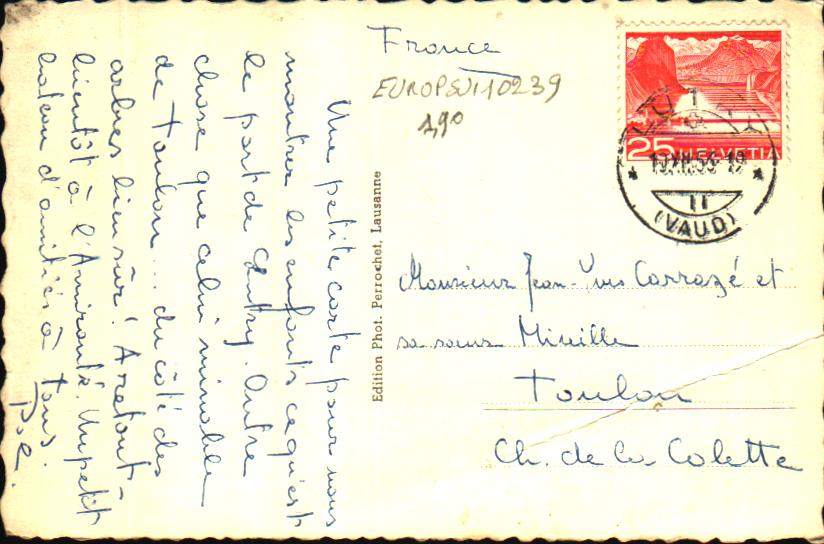 Une petite carte pour vous
montrer les enfants ce qu'est
le port de Lutry. Autre
chose que celui minable
de Toulon... du côté des
arbres bien sûr! A
bientôt à l'Amirauté. Un petit
d'amitiés à tous.
Edition Phot. Perrochet, Lausanne
France
EUROPSUI10239
1,90
25 HELVETIA
LUTRY
1
53-19
(VAUD)
Monsieur Jean-Yves Carrazé et
sa sœur Mireille
Toulon
Ch. de la Colette